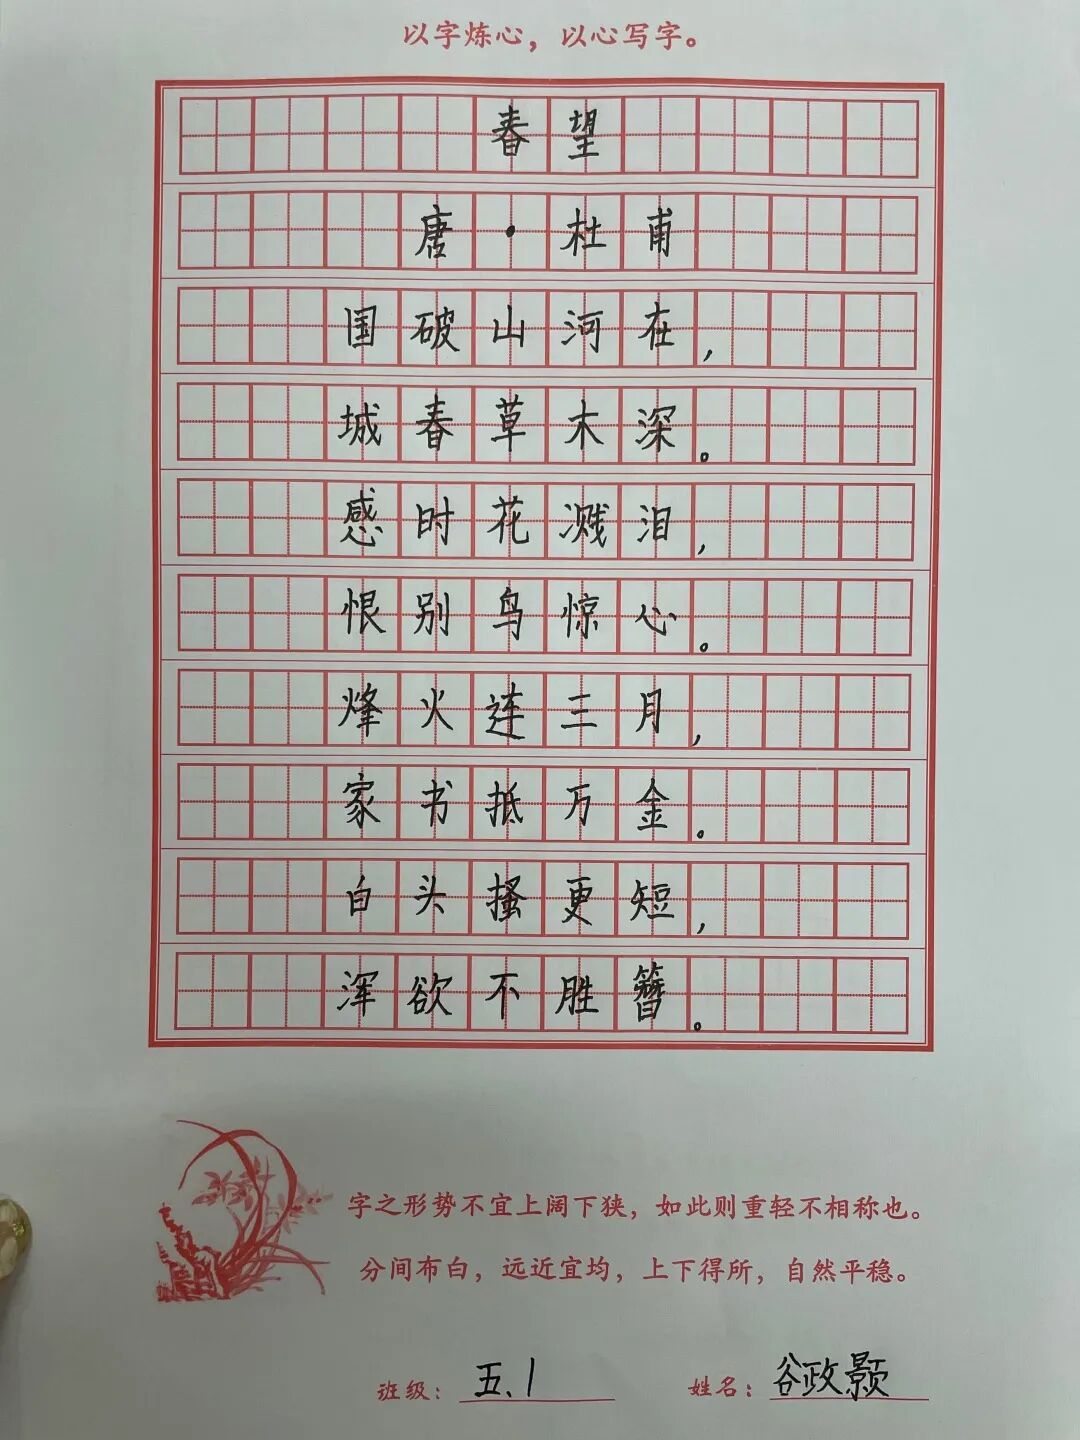 以字炼心，以心写字。
春望
唐·杜甫
国破山河在，
城春草木深。
感时花溅泪，
恨别鸟惊心。
烽火连三月，
家书抵万金。
白头搔更短，
浑欲不胜簪。
字之形势不宜上阔下狭，如此则重轻不相称也。
分间布白，远近宜均，上下得所，自然平稳。
班级：五.1 姓名：谷政颢